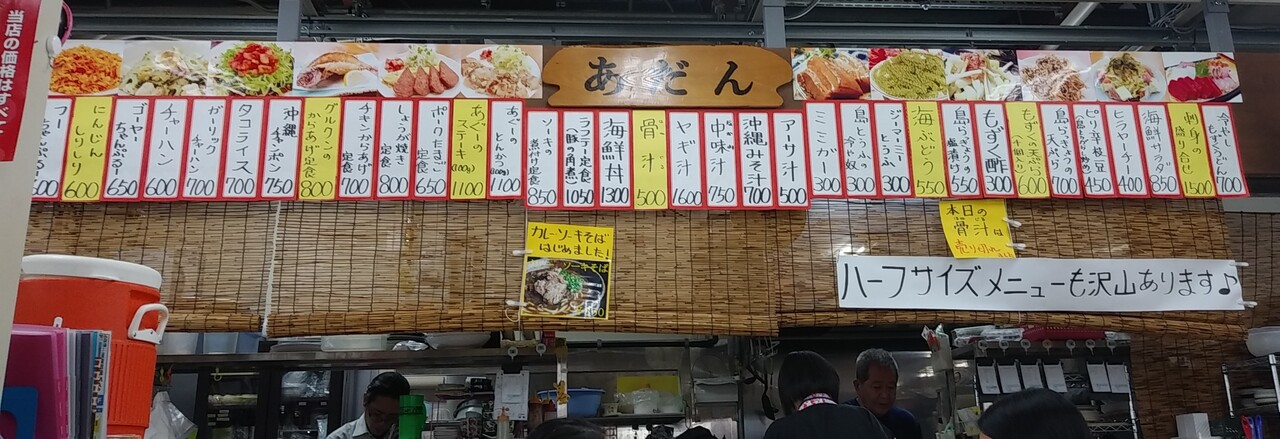 当店の価格はすべて
あだん
600
にんじんしりしり 600
ゴーヤーちゃんぷるー 650
チャーハン 600
ガーリックチャーハン 700
タコライス 700
沖縄チャンポン 750
グルクンのからあげ定食 800
チキンからあげ定食 700
しょうが焼き定食 800
ポークたまご定食 650
あぐーのステーキ(100g) 1100
あぐーのとんかつ(100g) 1100
ソーキの煮付け定食 850
ラフテー定食(豚の角煮) 1050
海鮮丼 1300
骨汁 500
ヤギ汁 1600
中味汁 750
沖縄みそ汁 700
アーサ汁 500
ミミガー 300
島とうふの冷や奴 300
ジーマーミーとうふ 300
海ぶどう 550
島らっきょうの塩漬け 550
もずく酢 300
もずくの天ぷら 600
島らっきょうの天ぷら 700
ピリ辛枝豆 450
ヒラヤーチー 400
海鮮サラダ 850
刺身の盛り合せ 1500
冷やしもずくうどん 700
カレーソーキそば
はじめました!
ソーキそば
本日の
骨汁は
売り切れ
ハーフサイズメニューも沢山あります♪